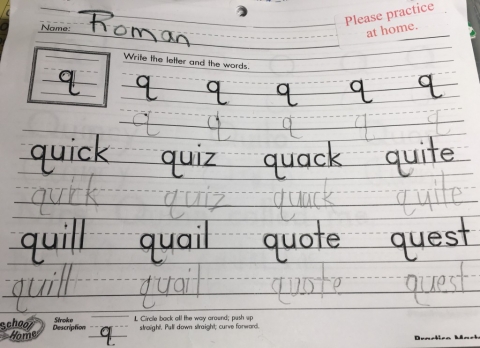 Name: Roman
Please practice
at home.
Write the letter and the words.
q q q q q q
q q q q q
quick quiz quack quite
quick quiz quack quite
quill quail quote quest
quill quail quote quest
School
Home
Stroke
Description
q
1. Circle back all the way around; push up
straight. Pull down straight; curve forward.
Practice